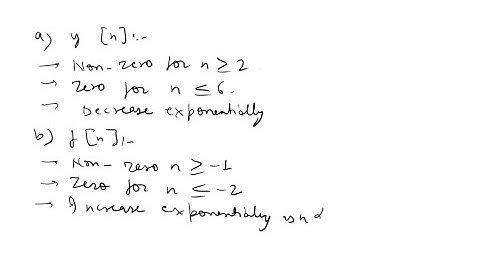 a) y [n]:-
→ Non-zero for n ≥ 2
→ Zero for n ≤ 6.
→ Decrease exponentially
b) f [n]:-
→ Non-zero n ≥ -1
→ Zero for n ≤ -2
→ Increase exponentially as n